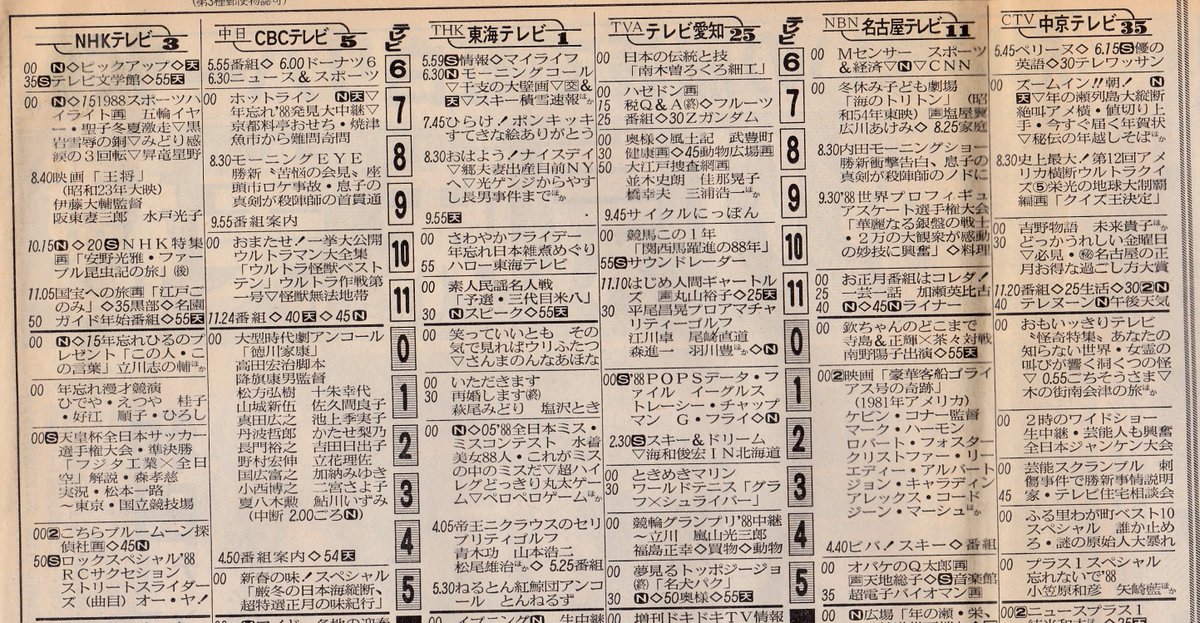 (第3種郵便物認可)
NHKテレビ 3
00 N◇ピックアップ◇天
35Sテレビ文学館◇55天
00 N◇15 1988スポーツハ
イライト画 五輪イヤ
ー・聖子冬夏激走▽黒
岩雪辱の銅▽みどり感
涙の3回転▽昇竜星野
8.40 映画「王将」
(昭和23年大映)
伊藤大輔監督
阪東妻三郎 水戸光子
10.15N◇20SNHK特集
画「安野光雅・ファー
ブル昆虫記の旅」(後)
11.05国宝への旅画「江戸ご
のみ」◇35黒部◇名園
50 ガイド年始番組◇55天
00 N◇15年忘れひるのプ
レゼント「この人・こ
の言葉」立川志の輔ほか
00 年忘れ漫才競演
ひでや・えつや 桂子
・好江 順子・ひろし
00S天皇杯全日本サッカー
選手権大会・準決勝
「フジタ工業×全日
空」解説・森孝慈
実況・松本一路
～東京・国立競技場
00②こちらブルームーン探
偵社画◇45N
50Sロックスペシャル'88
RCサクセション
ストリートスライダー
ズ(曲目)オー・ヤ!
中日 CBCテレビ 5
5.55番組◇6.00ドーナツ6
6.30ニュース&スポーツ
00 ホットライン N天▽
年忘れ'88発見大中継▽
京都料亭おせち・焼津
魚市から難問奇問
8.30モーニングEYE
勝新“苦悩の会見”座
頭市ロケ事故・息子の
真剣が殺陣師の首貫通
9.55番組案内
00 おまたせ!一挙大公開
ウルトラマン大全集
「ウルトラ怪獣ベスト
テン」ウルトラ作戦第
一号▽怪獣無法地帯
11.24番組◇40天◇45N
00 大型時代劇アンコール
「徳川家康」
高田宏治脚本
降旗康男監督
松方弘樹 十朱幸代
山城新伍 佐久間良子
真田広之 池上季実子
丹波哲郎 かたせ梨乃
長門裕之 吉田日出子
野村宏伸 立花理佐
国広富之 加納みゆき
小西博之 二宮さよ子
夏八木勲 鮎川いずみ
(中断 2.00ごろN)
4.50番組案内◇54天
00 新春の味!スペシャル
「厳冬の日本海縦断、
超特選正月の味紀行」
テレビ
6
7
8
9
10
11
0
1
2
3
4
5
THK 東海テレビ 1
5.59S情報◇マイライフ
6.30Nモーニングコール
▽干支の大壁画▽交&
天▽スキー積雪速報ほか
7.45ひらけ!ポンキッキ
すてきな絵ありがとう
8.30おはよう!ナイスデイ
▽郷夫妻出産目前NY
へ▽光ゲンジからやす
し長男事件までほか
9.55天
00 さわやかフライデー
年忘れ日本雑煮めぐり
55 ハロー東海テレビ
00 素人民謡名人戦
「予選・三代目米八」
30 Nスピーク◇55天
00 笑っていいとも その
気で見ればウリふたつ
▽さんまのんなあほな
00 いただきます
30 再婚します(終)
萩尾みどり 塩沢とき
00 N◇05'88全日本ミス・
ミスコンテスト 水着
美女88人・これがミス
の中のミスだ▽超ハイ
レグどっきり丸太ゲー
ム▽ペロペロゲームほか
4.05帝王ニクラウスのセリ
ブリティゴルフ
青木功 山本浩二
松尾雄治ほか◇5.25番組
5.30ねるとん紅鯨団アンコ
ール とんねるず
TVA テレビ愛知 25
00 日本の伝統と技
「南木曽ろくろ細工」
00 ハゼドン画
15 税Q&A(終)◇フルーツ
25 番組◇30Zガンダム
00 奥様◇風土記 武豊町
30 健康画◇45動物広場画
50 大江戸捜査網画
並木史朗 佳那晃子
橋幸夫 三浦浩一ほか
9.45サイクルにっぽん
00 競馬この1年
「関西馬躍進の88年」
55Sサウンドレーダー
11.10はじめ人間ギャートル
ズ 声丸山裕子◇25天
30 平尾昌晃プロアマチャ
リティーゴルフ
江川卓 尾崎直道
森進一 羽川豊ほか◇N
00S'88POPSデータ・フ
ァイル イーグルス
トレーシー・チャップ
マン G・フライ◇N
2.30Sスキー&ドリーム
▽海和俊宏IN北海道
00 ときめきマリン
30 ワールドテニス「グラ
フ×シュライバー」
00 競輪グランプリ'88中継
～立川 嵐山光三郎
福島正幸◇買物◇動物
00 夢見るトッポジージョ
画「名犬パク」
30 N◇50奥様◇55天
00 増刊ドキドキTV情報
テレビ
6
7
8
9
10
11
0
1
2
3
4
5
NBN 名古屋テレビ 11
00 Mセンサー スポーツ
&経済▽N▽CNN
00 冬休み子ども劇場
「海のトリトン」(昭
和54年東映)声塩屋翼
広川あけみ◇8.25家庭
8.30内田モーニングショー
勝新衝撃告白、息子の
真剣が殺陣師のノドに
9.30'88世界プロフィギュ
アスケート選手権大会
「華麗なる銀盤の戦士
・2万の大観衆が感動
の妙技に興奮」◇料理
00 お正月番組はコレダ!
25 一芸一話 加瀬英比古
40 N◇45Nライナー
00 欽ちゃんのどこまで
寺島&正輝×茶々対戦
南野陽子出演◇55天
00②映画「豪華客船ゴライ
アス号の奇跡」
(1981年アメリカ)
ケビン・コナー監督
マーク・ハーモン
ロバート・フォスター
クリストファー・リー
エディー・アルバート
ジョン・キャラディン
アレックス・コード
ジーン・マーシュほか
4.40ビバ!スキー◇番組
00 オバケのQ太郎画
声天地総子◇S音楽館
35 超電子バイオマン画
00 N広場「年の瀬・栄、
CTV 中京テレビ 35
5.45ペリーヌ◇6.15S優の
英語◇30テレワッサン
00 ズームイン!!朝! N
天▽年の瀬列島大縦断
絶叫アメ横・値切り上
手・今すぐ届く年賀状
▽秘伝の年越しそばほか
8.30史上最大!第12回アメ
リカ横断ウルトラクイ
ズ⑤栄光の地球大制覇
編画「クイズ王決定」
00 吉野物語 未来貴子ほか
30 どっかうれしい金曜日
▽必見・㊙名古屋の正
月お得な過ごし方大賞
11.20番組◇25生活◇30②N
40 テレヌーンN午後天気
00 おもいッきりテレビ
“怪奇特集”あなたの
知らない世界・女霊の
叫びが響く洞くつの怪
▽0.55ごちそうさま▽
木の街南会津の旅ほか
00 2時のワイドショー
生中継・芸能人も興奮
全日本ジャンケン大会
00 芸能スクランブル 刺
傷事件で勝新事情説明
45 家・テレビ住宅相談会
00 ふる里わが町ベスト10
スペシャル 誰か止め
ろ・謎の原始人大暴れ
00 プラス1スペシャル
忘れないで'88
小笠原和彦 矢崎藍ほか
00②ニュースプラス1